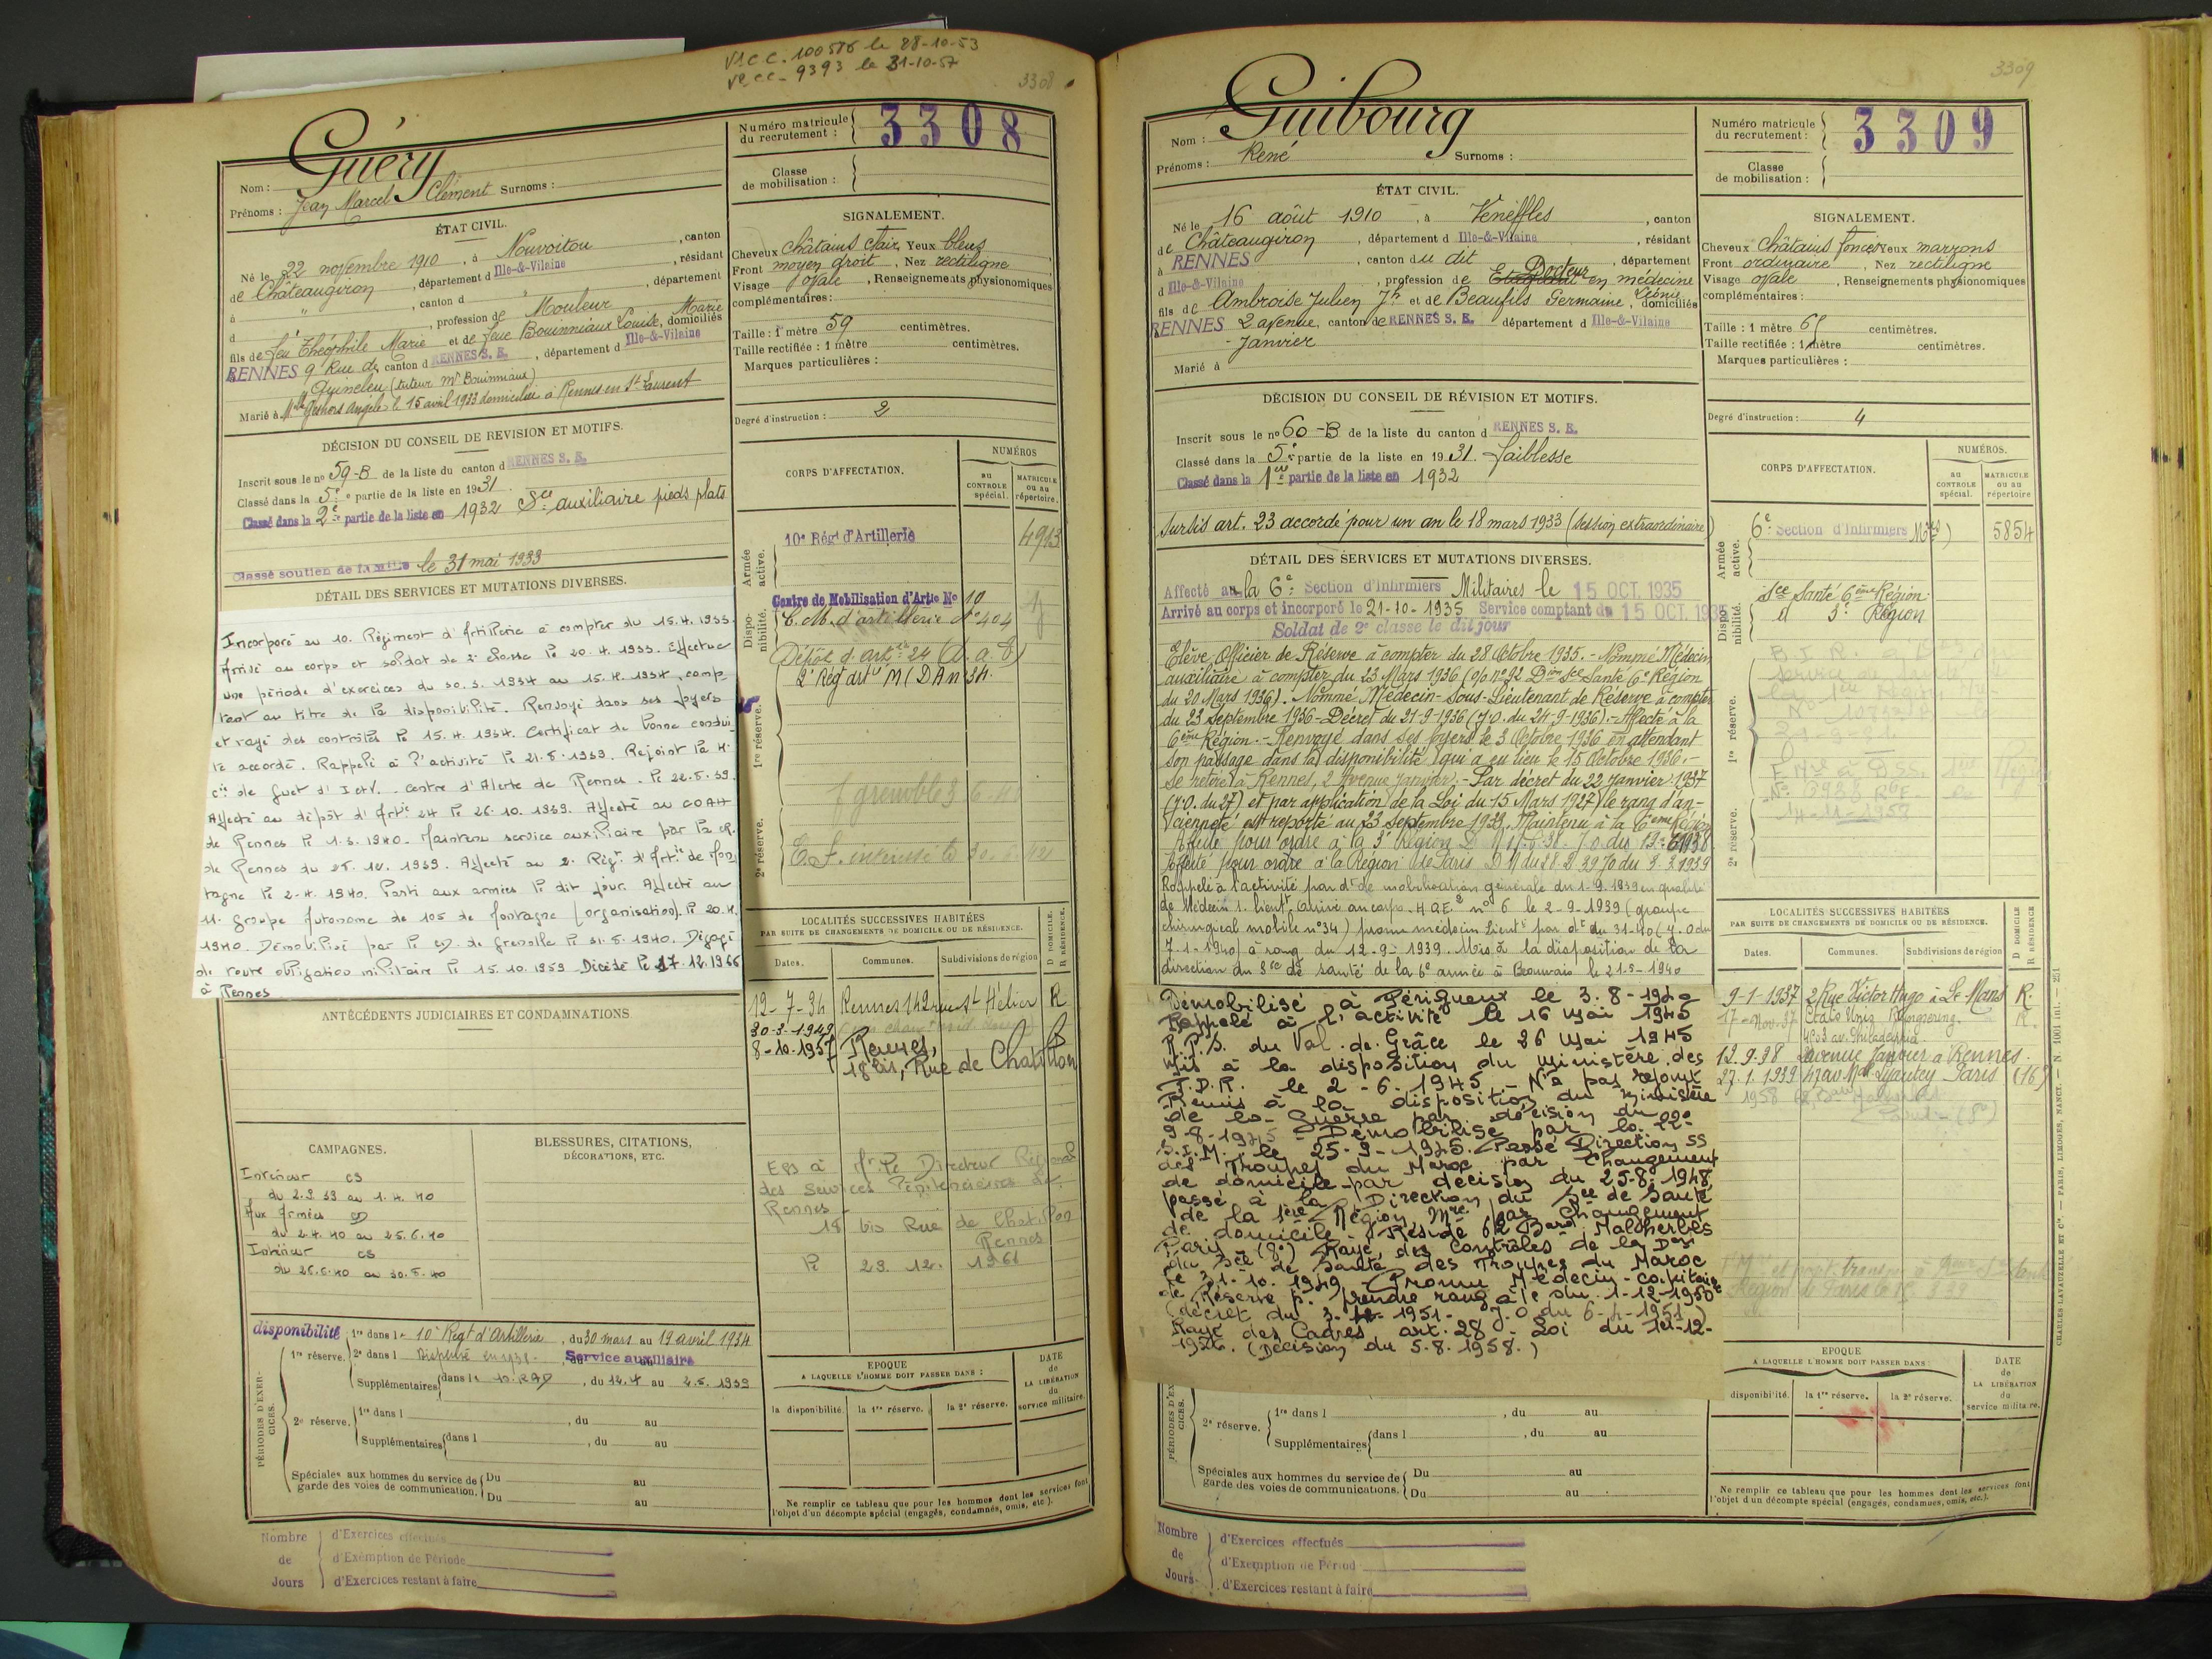 V1CC. 100576 le 28-10-53
VR.CC. 9393 le 31-10-57
3308
Nom : Guéry
Prénoms : Jean Marcel Clément Surnoms :
Numéro matricule du recrutement : 3308
Classe de mobilisation :
ÉTAT CIVIL.
Né le 22 novembre 1910, à Nouvoitou, canton
de Châteaugiron, département d Ille-&-Vilaine, résidant
à " , canton d , département
d , profession de Mouleur
fils de feu Théophile Marie et de feue Bouinniaux Louise, Marie domiciliés
RENNES 9 Rue de canton d RENNES S. E., département d Ille-&-Vilaine
Quineleu (tuteur Mr Bouinniaux)
Marié à Melle Angèle le 15 avril 1933 domiciliée à Rennes en St Laurent
SIGNALEMENT.
Cheveux châtains clair Yeux bleus
Front moyen droit, Nez rectiligne
Visage ovale, Renseignements physionomiques
complémentaires :
Taille : 1 mètre 59 centimètres.
Taille rectifiée : 1 mètre centimètres.
Marques particulières :
Degré d'instruction : 2
DÉCISION DU CONSEIL DE REVISION ET MOTIFS.
Inscrit sous le no 59-B de la liste du canton d RENNES S. E.
Classé dans la 5e partie de la liste en 1931
Classé dans la 2e partie de la liste en 1932 Sce auxiliaire pieds plats
Classé soutien de famille le 31 mai 1933
DÉTAIL DES SERVICES ET MUTATIONS DIVERSES.
Incorporé au 10. Régiment d'Artillerie à compter du 15.4.1933.
Arrivé au corps et soldat de 2e classe le 20.4.1933. Effectue
une période d'exercices du 30.3.1934 au 15.4.1934, comp
tant au titre de la disponibilité. Renvoyé dans ses foyers
et rayé des contrôles le 15.4.1934. Certificat de bonne condui
te accordé. Rappelé à l'activité le 21.8.1939. Rejoint la 4e
cie de Guet d'I et V. centre d'Alerte de Rennes. le 22.8.39.
Affecté au dépôt d'Artie 24 le 26.10.1939. Affecté au COAH
de Rennes le 1.3.1940. Maintenu service auxiliaire par la CR.
de Rennes du 25.10.1939. Affecté au 2e Régt d'Artie de Mon
tagne le 2.4.1940. Parti aux armées le dit jour. Affecté au
11e groupe Autonome de 105 de Montagne (organisation) le 20.4.
1940. Démobilisé par le CD. de Grenoble le 31.8.1940. Dégagé
de toute obligation militaire le 15.10.1959 Décédé le 17.12.1966
à Rennes
CORPS D'AFFECTATION.
NUMÉROS
au CONTROLE spécial.
MATRICULE ou au répertoire.
Armée active.
10e Régt d'Artillerie 4913
Disponibilité.
Centre de Mobilisation d'Artie No 10
C.M. d'artillerie No 404
Dépôt d'artie 24 (D.a.8)
2e Rég art M (DAn 24.
1re réserve.
2e réserve.
LOCALITÉS SUCCESSIVES HABITÉES
PAR SUITE DE CHANGEMENTS DE DOMICILE OU DE RÉSIDENCE.
Dates. Communes. Subdivisions de région D DOMICILE. R RÉSIDENCE.
12-7-34 Rennes 142 rue St Hélier R
30-3-1949
8-10-1957 Rennes,
18 bis, Rue de Chatillon
ANTÉCÉDENTS JUDICIAIRES ET CONDAMNATIONS
CAMPAGNES.
Intérieur CS
du 2.9.39 au 1.4.40
Aux Armées CD
du 2.4.40 au 25.6.40
Intérieur CS
du 26.6.40 au 30.8.40
BLESSURES, CITATIONS,
DÉCORATIONS, ETC.
Egs à Mr. le Directeur Régional
des Services Pénitenciaires de
Rennes
18 bis Rue de Chatillon
Rennes
le 29.12.1966
PÉRIODES D'EXERCICES.
disponibilité 1re dans le 10e Regt d'Artillerie, du 30 mars au 19 avril 1934
1re réserve. 2e dans l Dispensé en 1938 Service auxiliaire
Supplémentaires dans le 10. RAD, du 14.4 au 4.5.1939
2e réserve. 1re dans l , du au
Supplémentaires dans l , du au
Spéciales aux hommes du service de garde des voies de communication. Du au
Du au
EPOQUE
A LAQUELLE L'HOMME DOIT PASSER DANS :
la disponibilité. la 1re réserve. la 2e réserve.
DATE de LA LIBÉRATION du service militaire.
Ne remplir ce tableau que pour les hommes dont les services font
l'objet d'un décompte spécial (engagés, condamnés, omis, etc.).
Nombre de Jours
d'Exercices effectués
d'Exemption de Période
d'Exercices restant à faire
3309
Nom : Guibourg
Prénoms : René Surnoms :
Numéro matricule du recrutement : 3309
Classe de mobilisation :
ÉTAT CIVIL.
Né le 16 août 1910, à Veneffles, canton
de Châteaugiron, département d Ille-&-Vilaine, résidant
à RENNES, canton du dit, département
d Ille-&-Vilaine, profession de Etudiant Docteur en médecine
fils de Ambroise Julien Jh et de Beaufils Germaine, Léonie domiciliés
RENNES 2 avenue, canton de RENNES S. E. département d Ille-&-Vilaine
Janvier
Marié à
SIGNALEMENT.
Cheveux châtains foncés Yeux marrons
Front ordinaire, Nez rectiligne
Visage ovale, Renseignements physionomiques
complémentaires :
Taille : 1 mètre 65 centimètres.
Taille rectifiée : 1 mètre centimètres.
Marques particulières :
Degré d'instruction : 4
DÉCISION DU CONSEIL DE RÉVISION ET MOTIFS.
Inscrit sous le no 60-B de la liste du canton d RENNES S. E.
Classé dans la 5e partie de la liste en 1931. faiblesse
Classé dans la 1re partie de la liste en 1932
Sursis art. 23 accordé pour un an le 18 mars 1933 (session extraordinaire)
DÉTAIL DES SERVICES ET MUTATIONS DIVERSES.
Affecté à la 6e Section d'Infirmiers Militaires le 15 OCT. 1935
Arrivé au corps et incorporé le 21-10-1935 Service comptant du 15 OCT. 1935
Soldat de 2e classe le dit jour
Elève Officier de Réserve à compter du 28 Octobre 1935. - Nommé Médecin
auxiliaire à compter du 23 Mars 1936 (O/o no 92 Don Sce Santé 6e Région
du 20 Mars 1936). Nommé Médecin-Sous-Lieutenant de Réserve à compter
du 23 septembre 1936-Décret du 21-9-1936 (J.O. du 24-9-1936).-Affecté à la
6ème Région.-Renvoyé dans ses foyers le 3 Octobre 1936 en attendant
son passage dans la disponibilité qui a eu lieu le 15 Octobre 1936.-
se retire à Rennes, 2 Avenue Janvier.-Par décret du 22 Janvier 1937
(J.O. du 27) et par application de la Loi du 15 Mars 1927) le rang d'an-
cienneté est reporté au 23 Septembre 1933. Maintenu à la 6ème Région
Affecté pour ordre à la 3e Région
Affecté pour ordre à la Région de Paris D M du 28.2.39 JO du 3.3.1939
Rappelé à l'activité par dt de mobilisation générale du 1-9-1939 en qualité
de Médecin s. lieut. Arrivé au corps H.O.E. no 6 le 2-9-1939 (groupe
chirurgical mobile no 34) promu médecin lieutt par dt du 3-1-40 (J.O du
7-1-1940) à rang du 12-9-1939. Mis à la disposition de la
direction du Sce de santé de la 6e armée à Beauvais le 21-5-1940
Démobilisé à Périgueux le 3-8-1940
Rappelé à l'activité le 16 Mai 1945
P.P.S. du Val-de-Grâce le 26 Mai 1945
Mis à la disposition du ministère des
P.D.R. le 2-6-1945 - N'a pas rejoint
Remis à la disposition du ministère
de la Guerre par décision du
9-8-1945 - Démobilisé par la 22e
S.I.M. le 25-9-1945. Passé Direction SS
des Troupes du Maroc par changement
de domicile par décision du 25-8-1948
passé à la Direction du Sce de Santé
de la 1ère Région Mre par changement
de domicile - Réside 62 Bard Malherbes
Paris (8e) Rayé des contrôles de la Don
du Sce de Santé des Troupes du Maroc
le 31-10-1949 - Promu Médecin-capitaine
de Réserve p. prendre rang à/c du 1-12-1950
(décret du 3-4-1951 - J.O du 6-4-1951)
Rayé des Cadres art. 28 - Loi du 1er-12-
1956. (Décision du 5.8.1958.)
CORPS D'AFFECTATION.
NUMÉROS.
au CONTROLE spécial.
MATRICULE ou au répertoire
Armée active.
6e Section d'Infirmiers Mres 5854
Disponibilité.
Sce Santé 6ème Région
d 3e Région
1re réserve.
2e réserve.
14-11-1957
LOCALITÉS SUCCESSIVES HABITÉES
PAR SUITE DE CHANGEMENTS DE DOMICILE OU DE RÉSIDENCE.
Dates. Communes. Subdivisions de région D DOMICILE R RÉSIDENCE.
9-1-1937 2 Rue Victor Hugo à Le Mans R.
17-Nov.37 Etats Unis R.
12.9.38 2 avenue Janvier à Rennes.
27.1.1939 47 av Mal Lyautey Paris (16e)
PÉRIODES D'EXERCICES.
2e réserve. 1re dans l , du au
Supplémentaires dans l , du au
Spéciales aux hommes du service de garde des voies de communications. Du au
Du au
EPOQUE
A LAQUELLE L'HOMME DOIT PASSER DANS :
disponibilité. la 1re réserve. la 2e réserve.
DATE de LA LIBÉRATION du service militaire.
Ne remplir ce tableau que pour les hommes dont les services font
l'objet d'un décompte spécial (engagés, condamnés, omis, etc.).
CHARLES-LAVAUZELLE ET Cie. — PARIS, LIMOGES, NANCY.
Nombre de Jours
d'Exercices effectués
d'Exemption de Périod
d'Exercices restant à faire